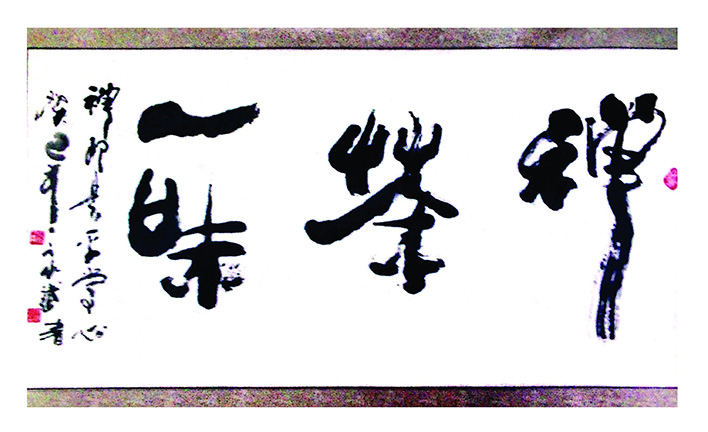 禅茶一味
禅即是平常心
癸巳年